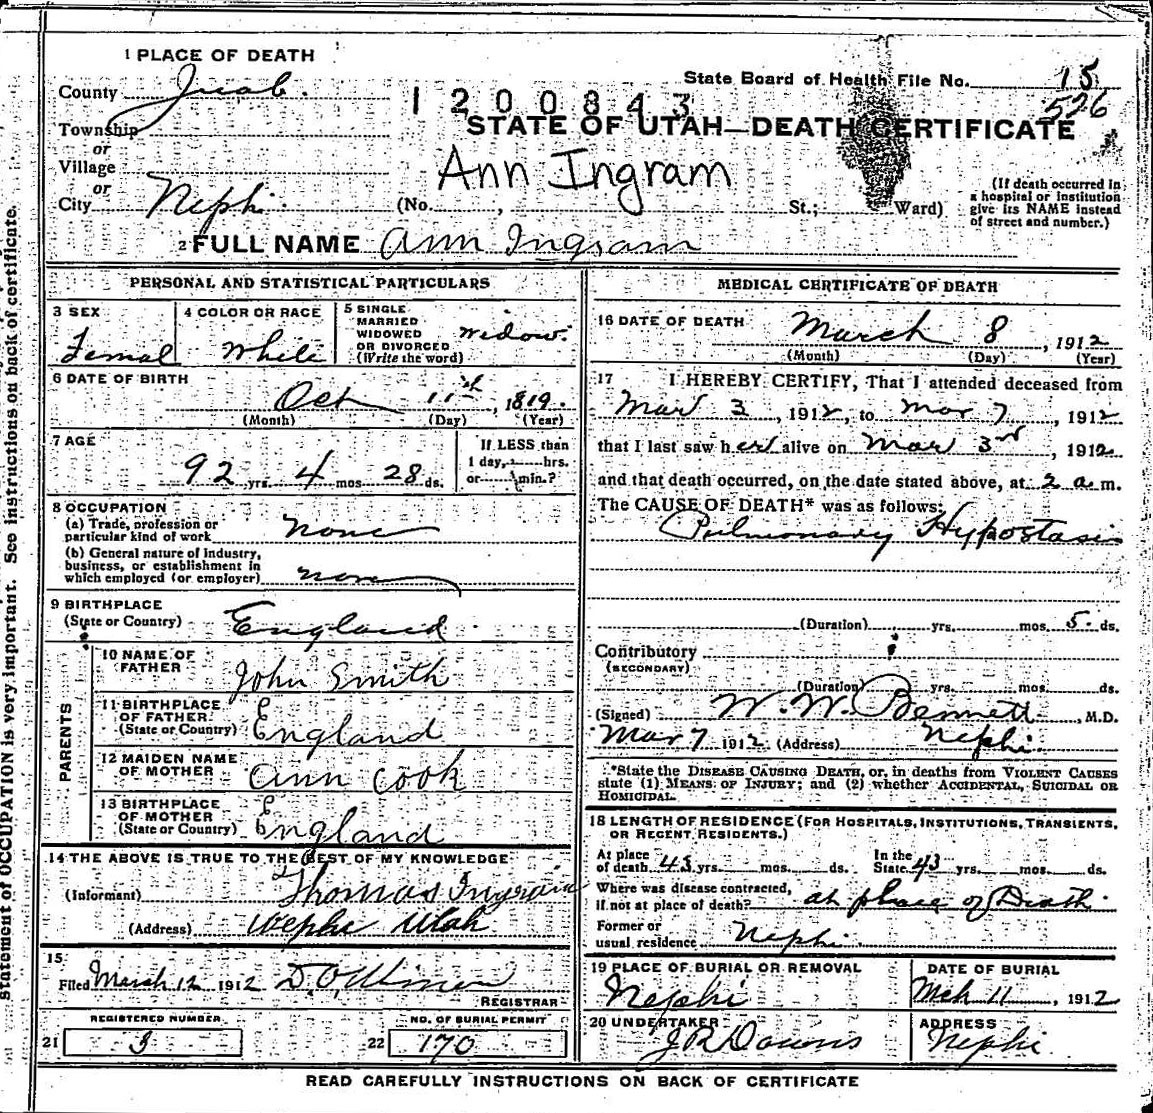 1 PLACE OF DEATH
County Juab.
State Board of Health File No. 15
526
1200843
Township
or
Village
or
City Nephi.
STATE OF UTAH—DEATH CERTIFICATE
Ann Ingram
(No. , St.; Ward)
(If death occurred in
a hospital or institution
give its NAME instead
of street and number.)
2 FULL NAME Ann Ingram
statement of OCCUPATION is very important. See instructions on back of certificate.
PERSONAL AND STATISTICAL PARTICULARS
3 SEX
Femal
4 COLOR OR RACE
White
5 SINGLE
MARRIED
WIDOWED
OR DIVORCED
(Write the word)
Widow.
6 DATE OF BIRTH
Oct 11th, 1819.
(Month) (Day) (Year)
7 AGE
92 yrs. 4 mos. 28 ds.
If LESS than
1 day, hrs.
or min.?
8 OCCUPATION
(a) Trade, profession or
particular kind of work none
(b) General nature of industry,
business, or establishment in
which employed (or employer) none
9 BIRTHPLACE
(State or Country) England.
PARENTS
10 NAME OF
FATHER John Smith
11 BIRTHPLACE
OF FATHER
(State or Country) England
12 MAIDEN NAME
OF MOTHER Ann Cook
13 BIRTHPLACE
OF MOTHER
(State or Country) England
14 THE ABOVE IS TRUE TO THE BEST OF MY KNOWLEDGE
(Informant) Thomas Ingram
(Address) Nephi Utah
15
Filed March 12 1912
REGISTRAR
REGISTERED NUMBER
21 3
NO. OF BURIAL PERMIT
22 170
MEDICAL CERTIFICATE OF DEATH
16 DATE OF DEATH March 8, 1912
(Month) (Day) (Year)
17 I HEREBY CERTIFY, That I attended deceased from
Mar 3, 1912, to Mar 7, 1912
that I last saw her alive on Mar 3rd, 1912
and that death occurred, on the date stated above, at 2 a.m.
The CAUSE OF DEATH* was as follows:
Pulmonary Hypostasis
(Duration) yrs. mos. 5. ds.
Contributory
(SECONDARY)
(Duration) yrs. mos. ds.
(Signed) W. W. Bennett, M.D.
Mar 7 1912 (Address) Nephi.
*State the DISEASE CAUSING DEATH, or, in deaths from VIOLENT CAUSES
state (1) MEANS OF INJURY; and (2) whether ACCIDENTAL, SUICIDAL OR
HOMICIDAL.
18 LENGTH OF RESIDENCE (FOR HOSPITALS, INSTITUTIONS, TRANSIENTS,
OR RECENT RESIDENTS.)
At place
of death 43 yrs. mos. ds.
In the
State 43 yrs. mos. ds.
Where was disease contracted,
if not at place of death? at place of Death.
Former or
usual residence Nephi.
19 PLACE OF BURIAL OR REMOVAL
Nephi
DATE OF BURIAL
Mch 11, 1912
20 UNDERTAKER
J R Downs
ADDRESS
Nephi
READ CAREFULLY INSTRUCTIONS ON BACK OF CERTIFICATE